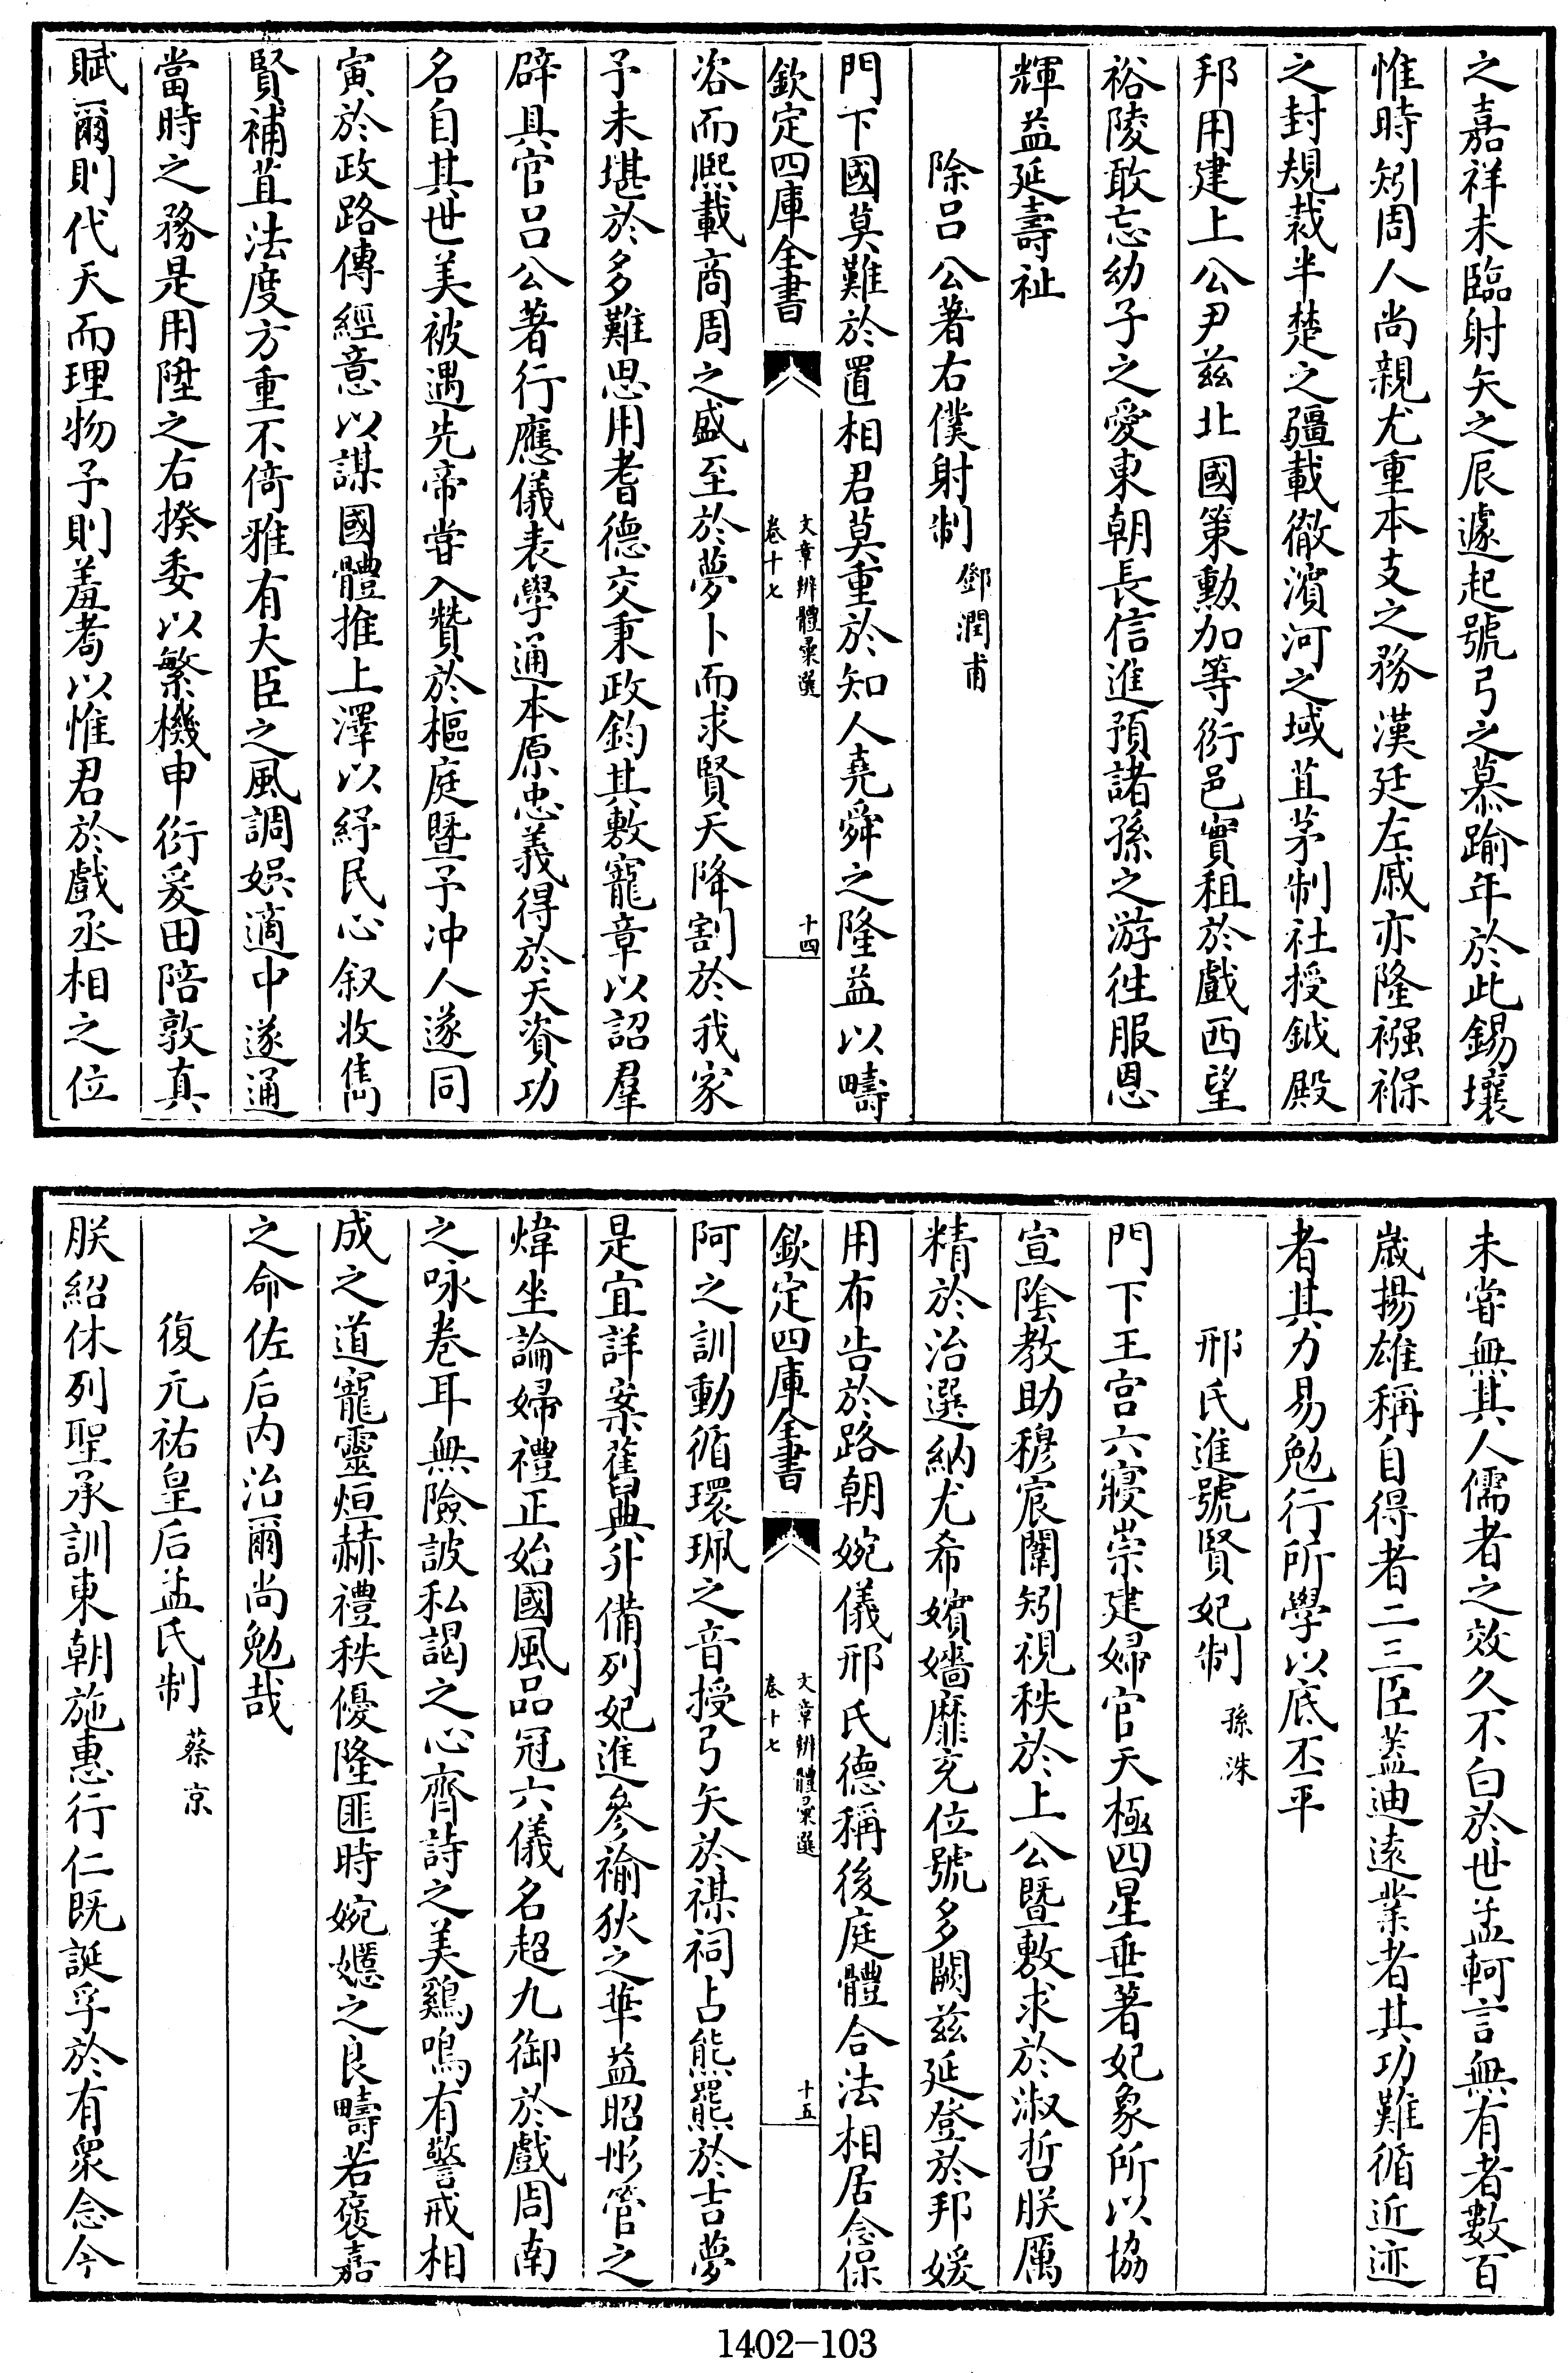 之嘉祥未臨射矢之辰遽起號弓之慕踰年於此錫壤
惟時矧周人尚親尤重本支之務漢廷左戚亦隆襁褓
之封規裁半楚之疆載徹濱河之域苴茅制社授鉞殿
邦用建上公尹兹北國策勳加等衍邑實租於戲西望
裕陵敢忘幼子之愛東朝長信進預諸孫之游徃服恩
輝益延壽祉
除吕公著右僕射制 鄧潤甫
門下國莫難於置相君莫重於知人堯舜之隆益以疇
欽定四庫全書 文章辨體彙選 卷十七 十四
咨而熙載商周之盛至於夢卜而求賢天降割於我家
予未堪於多難思用耆德交秉政鈞其敷寵章以詔羣
辟具官吕公著行應儀表學通本原忠義得於天資功
名自其世美被遇先帝嘗入贊於樞庭暨予冲人遂同
寅於政路傳經意以謀國體推上澤以紓民心叙收雋
賢補苴法度方重不倚雅有大臣之風調娯適中遂通
當時之務是用陞之右揆委以繁機申衍爰田陪敦真
賦爾則代天而理物予則羞耇以惟君於戲丞相之位
未嘗無其人儒者之效久不白於世孟軻言無有者數百
歲揚雄稱自得者二三臣蓋迪遠業者其功難循近迹
者其力易勉行所學以底丕平
邢氏進號賢妃制 孫洙
門下王宮六寢崇建婦官天極四星垂著妃象所以協
宣陰教助穆宸闈矧視秩於上公暨敷求於淑哲朕厲
精於治選納尤希嬪嬙靡充位號多闕兹延登於邦媛
用布告於路朝婉儀邢氏德稱後庭體合法相居念保
欽定四庫全書 文章辨體彙選 卷十七 十五
阿之訓動循環珮之音授弓矢於禖祠占熊羆於吉夢
是宜詳案舊典升備列妃進參褕狄之華益昭彤管之
煒坐論婦禮正始國風品冠六儀名超九御於戲周南
之咏卷耳無險詖私謁之心齊詩之美鷄鳴有警戒相
成之道寵靈烜赫禮秩優隆匪時婉嬺之良疇若褒嘉
之命佐后内治爾尚勉哉
復元祐皇后孟氏制 蔡京
朕紹休列聖承訓東朝施惠行仁既誕孚於有衆念今
1402-103